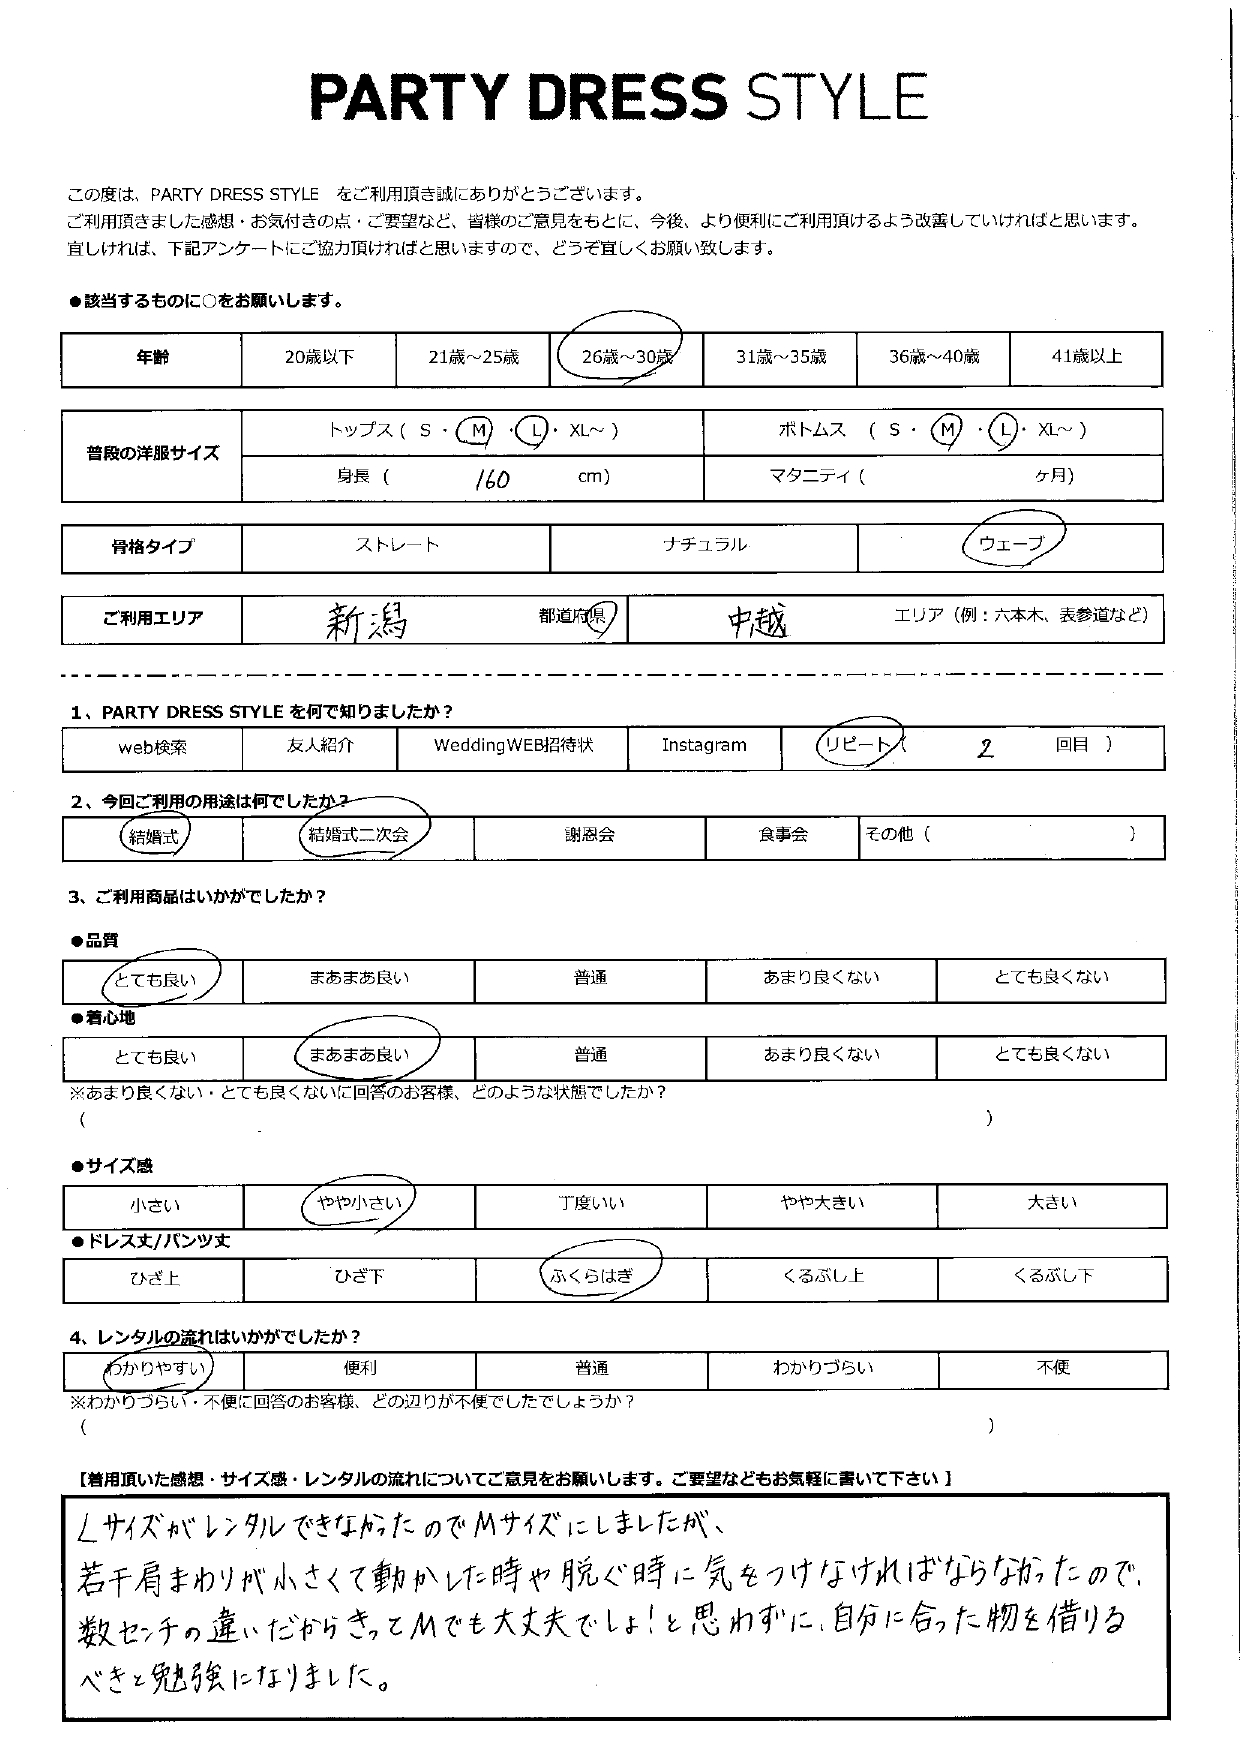 PARTY DRESS STYLE
この度は、PARTY DRESS STYLE をご利用頂き誠にありがとうございます。
ご利用頂きました感想・お気付きの点・ご要望など、皆様のご意見をもとに、今後、より便利にご利用頂けるよう改善していければと思います。
宜しければ、下記アンケートにご協力頂ければと思いますので、どうぞ宜しくお願い致します。
●該当するものに○をお願いします。
年齢 20歳以下 21歳～25歳 26歳～30歳 31歳～35歳 36歳～40歳 41歳以上
普段の洋服サイズ トップス ( S ・ M ・ L ・ XL～ ) ボトムス ( S ・ M ・ L ・ XL～ )
身長 ( 160 cm) マタニティ ( ヶ月)
骨格タイプ ストレート ナチュラル ウェーブ
ご利用エリア 新潟 都道府県 中越 エリア (例：六本木、表参道など)
1、PARTY DRESS STYLE を何で知りましたか？
web検索 友人紹介 WeddingWEB招待状 Instagram リピート ( 2 回目 )
2、今回ご利用の用途は何でしたか？
結婚式 結婚式二次会 謝恩会 食事会 その他 ( )
3、ご利用商品はいかがでしたか？
●品質
とても良い まあまあ良い 普通 あまり良くない とても良くない
●着心地
とても良い まあまあ良い 普通 あまり良くない とても良くない
※あまり良くない・とても良くないに回答のお客様、どのような状態でしたか？
( )
●サイズ感
小さい やや小さい 丁度いい やや大きい 大きい
●ドレス丈/パンツ丈
ひざ上 ひざ下 ふくらはぎ くるぶし上 くるぶし下
4、レンタルの流れはいかがでしたか？
わかりやすい 便利 普通 わかりづらい 不便
※わかりづらい・不便に回答のお客様、どの辺りが不便でしたでしょうか？
( )
【着用頂いた感想・サイズ感・レンタルの流れについてご意見をお願いします。ご要望などもお気軽に書いて下さい】
LサイズがレンタルできなかったのでMサイズにしましたが、
若干肩まわりが小さくて動かした時や脱ぐ時に気をつけなければならなかったので、
数センチの違いだからきっとMでも大丈夫でしょ！と思わずに、自分に合った物を借りる
べきと勉強になりました。